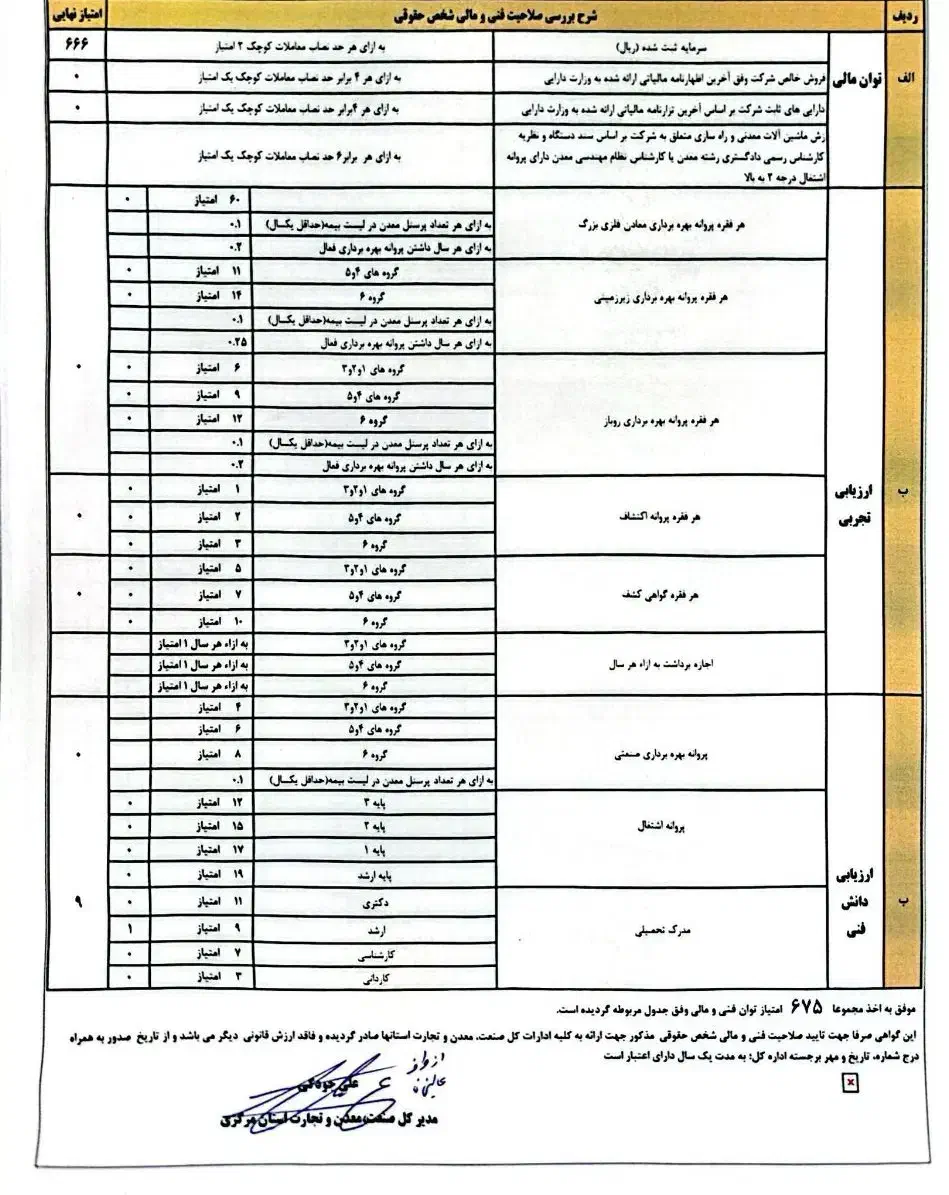 ردیف شرح بررسی صلاحیت فنی و مالی شخص حقوقی امتیاز نهایی
الف توان مالی سرمایه ثبت شده (ریال) به ازای هر حد نصاب معاملات کوچک ۲ امتیاز ۶۶۶
فروش خالص شرکت وفق آخرین اظهارنامه مالیاتی ارائه شده به وزارت دارایی به ازای هر ۴ برابر حد نصاب معاملات کوچک یک امتیاز ۰
دارایی های ثابت شرکت بر اساس آخرین ترازنامه مالیاتی ارائه شده به وزارت دارایی به ازای هر ۴برابر حد نصاب معاملات کوچک یک امتیاز ۰
زش ماشین آلات معدنی و راه سازی متعلق به شرکت بر اساس سند دستگاه و نظریه
کارشناس رسمی دادگستری رشته معدن یا کارشناس نظام مهندسی معدن دارای پروانه به ازای هر برابر۶ حد نصاب معاملات کوچک یک امتیاز
اشتغال درجه ۲ به بالا
ب ارزیابی تجربی
هر فقره پروانه بهره برداری معادن فلزی بزرگ ۶۰ امتیاز ۰
به ازای هر تعداد پرسنل معدن در لیست بیمه(حداقل یکسال) ۰.۱
به ازای هر سال داشتن پروانه بهره برداری فعال ۰.۲
هر فقره پروانه بهره برداری زیرزمینی گروه های ۴و۵ ۱۱ امتیاز ۰
گروه ۶ ۱۴ امتیاز ۰
به ازای هر تعداد پرسنل معدن در لیست بیمه(حداقل یکسال) ۰.۱
به ازای هر سال داشتن پروانه بهره برداری فعال ۰.۲۵
هر فقره پروانه بهره برداری روباز گروه های ۱و۲و۳ ۶ امتیاز ۰ ۰
گروه های ۴و۵ ۹ امتیاز ۰
گروه ۶ ۱۲ امتیاز ۰
به ازای هر تعداد پرسنل معدن در لیست بیمه(حداقل یکسال) ۰.۱
به ازای هر سال داشتن پروانه بهره برداری فعال ۰.۲
هر فقره پروانه اکتشاف گروه های ۱و۲و۳ ۱ امتیاز ۰
گروه های ۴و۵ ۲ امتیاز ۰ ۰
گروه ۶ ۳ امتیاز ۰
هر فقره گواهی کشف گروه های ۱و۲و۳ ۵ امتیاز ۰
گروه های ۴و۵ ۷ امتیاز ۰ ۰
گروه ۶ ۱۰ امتیاز ۰
اجازه برداشت به ازاء هر سال گروه های ۱و۲و۳ به ازاء هر سال ۱ امتیاز
گروه های ۴و۵ به ازاء هر سال ۱ امتیاز
گروه ۶ به ازاء هر سال ۱ امتیاز
ب ارزیابی دانش فنی
پروانه بهره برداری صنعتی گروه های ۱و۲و۳ ۴ امتیاز
گروه های ۴و۵ ۶ امتیاز
گروه ۶ ۸ امتیاز ۰
به ازای هر تعداد پرسنل معدن در لیست بیمه(حداقل یکسال) ۰.۱
پروانه اشتغال پایه ۳ ۱۲ امتیاز ۰
پایه ۲ ۱۵ امتیاز ۰
پایه ۱ ۱۷ امتیاز ۰
پایه ارشد ۱۹ امتیاز ۰
مدرک تحصیلی دکتری ۱۱ امتیاز ۰ ۹
ارشد ۹ امتیاز ۱
کارشناسی ۷ امتیاز ۰
کاردانی ۳ امتیاز ۰
موفق به اخذ مجموعا ۶۷۵ امتیاز توان فنی و مالی وفق جدول مربوطه گردیده است.
این گواهی صرفا جهت تایید صلاحیت فنی و مالی شخص حقوقی مذکور جهت ارائه به کلیه ادارات کل صنعت، معدن و تجارت استانها صادر گردیده و فاقد ارزش قانونی دیگر می باشد و از تاریخ صدور به همراه
درج شماره، تاریخ و مهر برجسته اداره کل؛ به مدت یک سال دارای اعتبار است
علی جودکی
مدیر کل صنعت،معدن و تجارت استان مرکزی